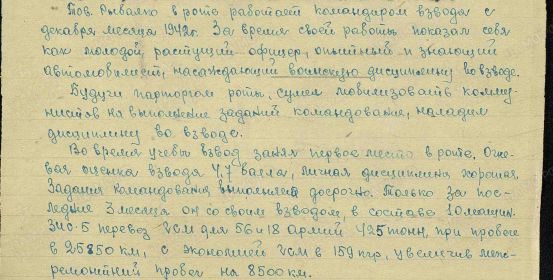 Тов. Рыбалко в роте работает командиром взвода с
декабря месяца 1942г. За время своей работы показал себя
как молодой, растущий офицер, опытный и знающий
автомобилист, насаждающий воинскую дисциплину во взводе.
Будучи парторгом роты, сумел мобилизовать комму-
нистов на выполнение заданий командования, наладил
дисциплину во взводе.
Во время учебы взвод занял первое место в роте. Огне-
вая оценка взвода 4,7 балла, личная дисциплина хорошая.
Задания командования выполняет досрочно. Только за пос-
ледние 3 месяца он со своим взводом, в составе 10 машин
Зис-5 перевез гсм для 56 и 18 Армий 425 тонн, при пробеге
в 25850 км, с экономией гсм в 159 кгр, увеличив меж-
ремонтный пробег на 8500 км.